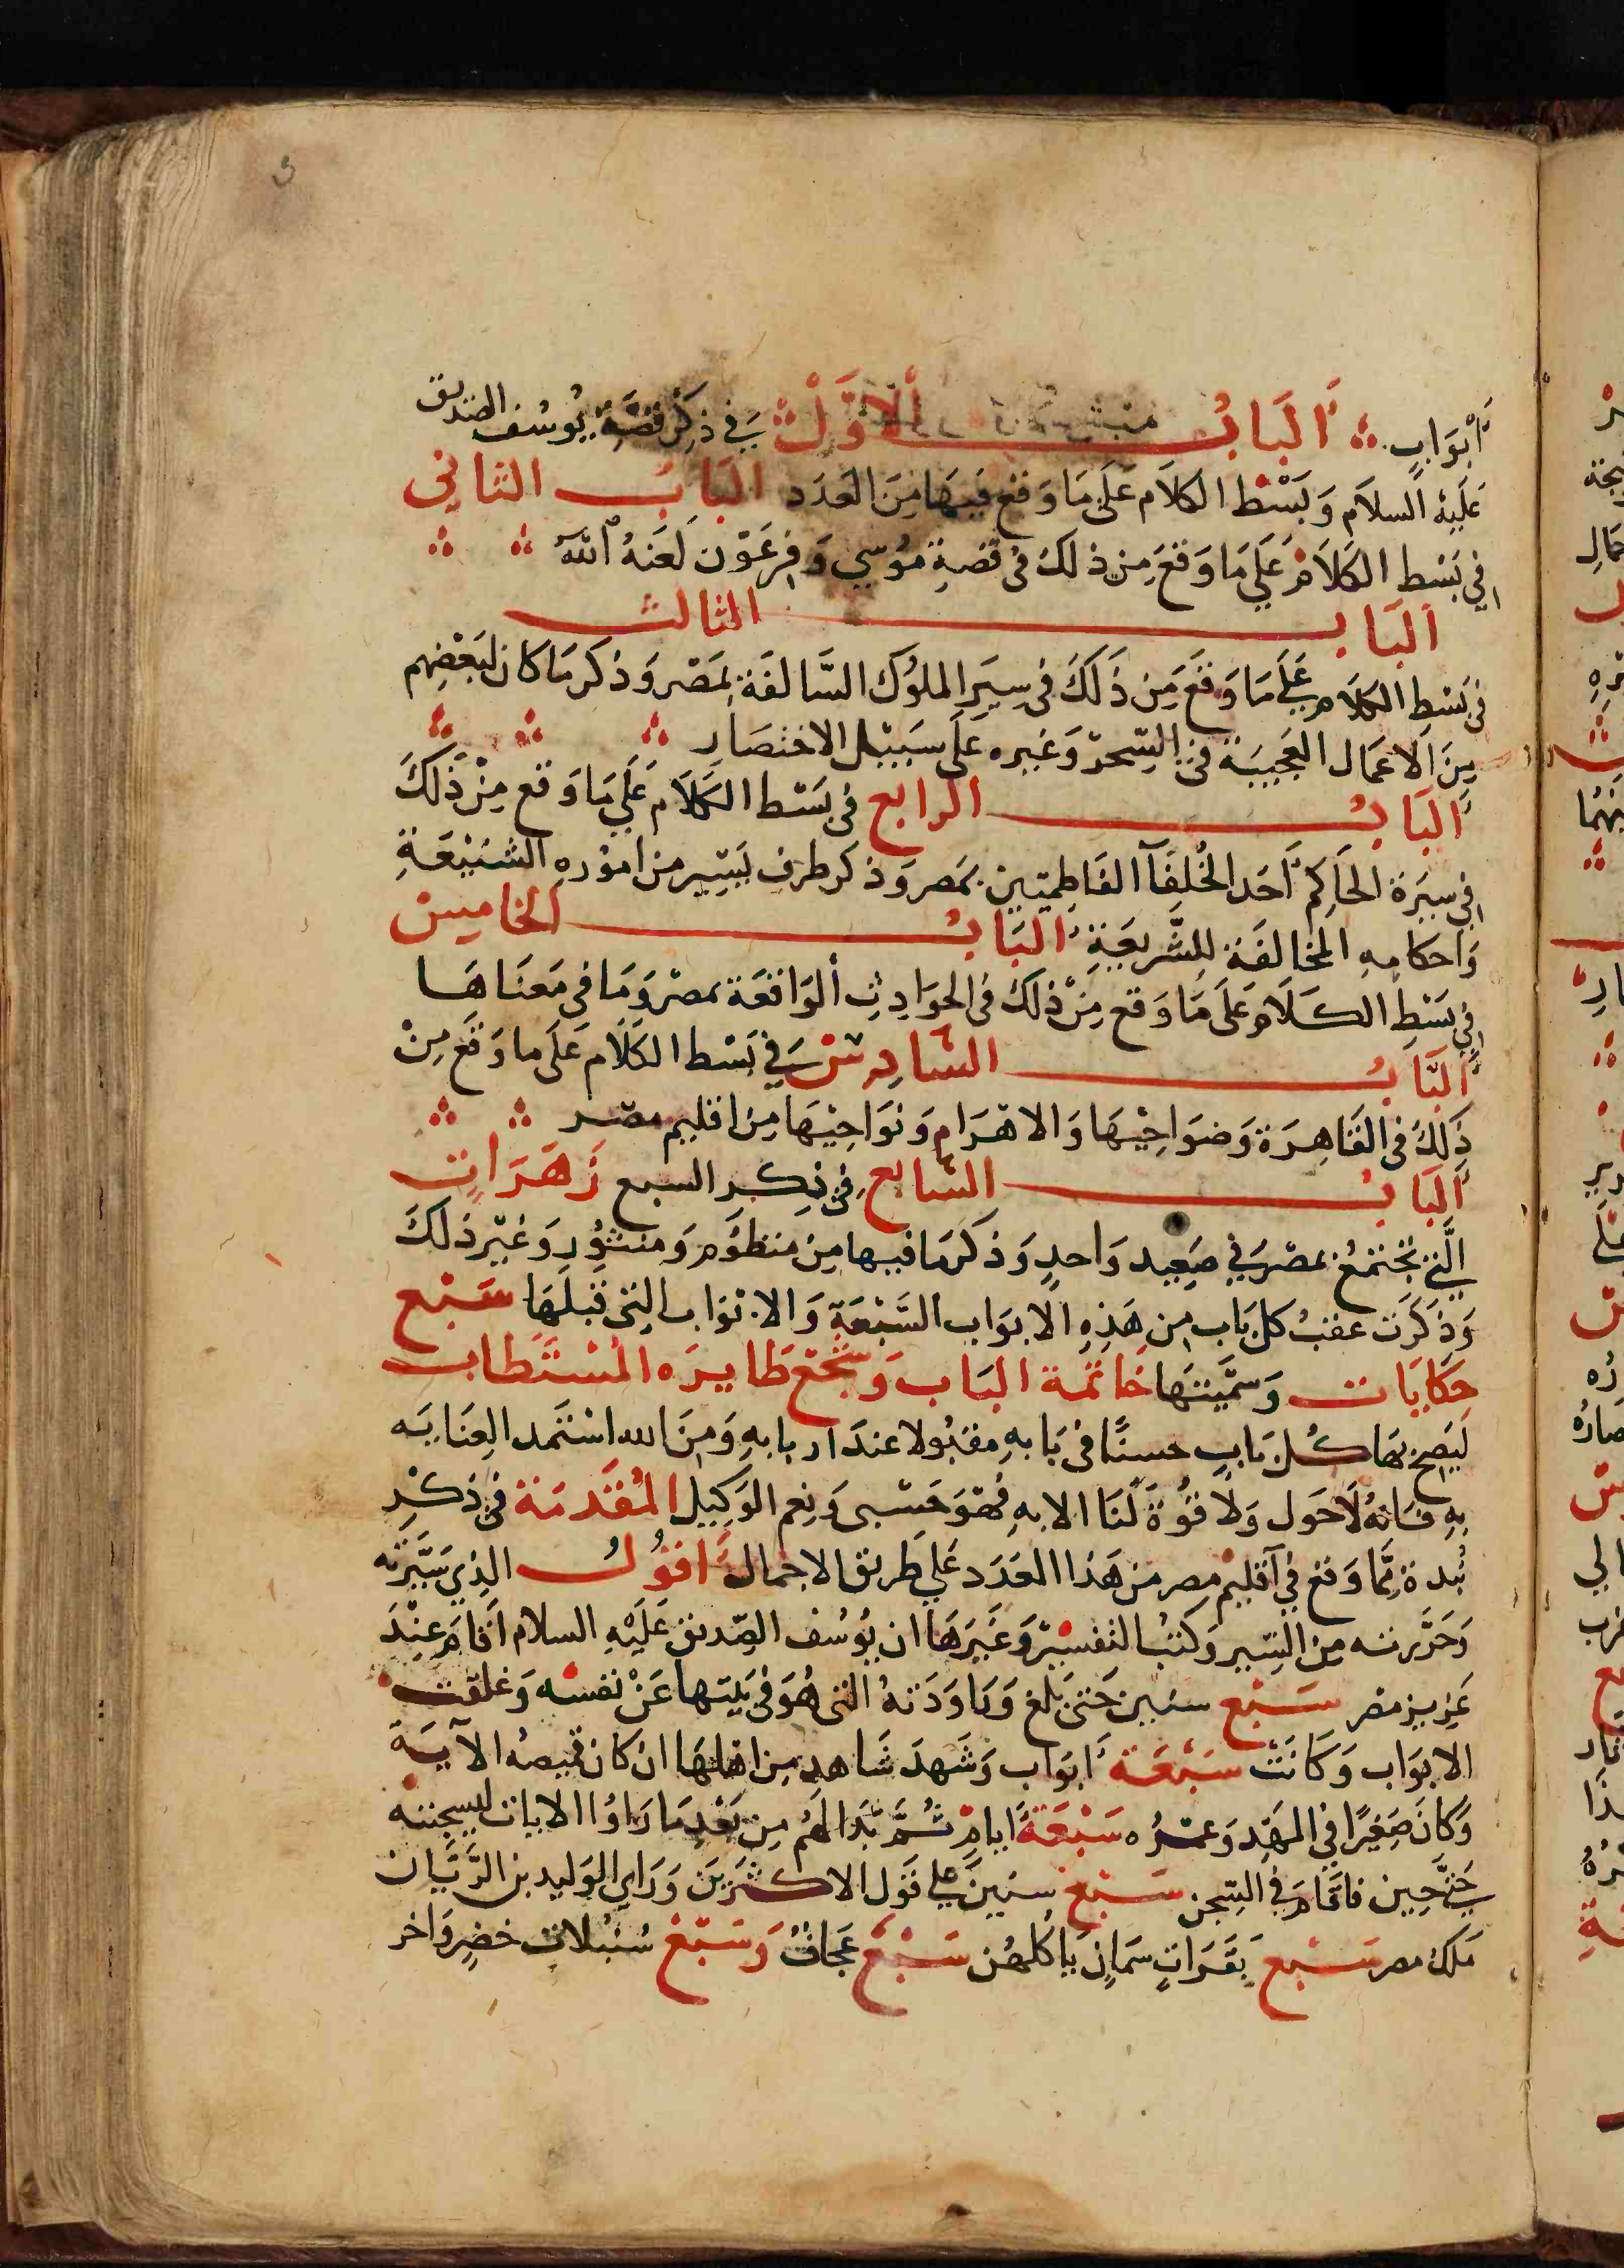 أبْوَابٍ اَلبَابُ الْاَوَّلُ في ذِكْرِ قصَّةِ يُوسُف الصديق
عَلَيْهِ السلاَم وَبَسْط الكلاَم عَلَى مَا وَقعَ فيهَا مِنَ العَدَد البَابُ الثاني
في بَسْط الكَلاَم عَلَي مَا وَقعَ مِن ذلكَ في قصةِ مُوسي وَفِرعَوْن لَعَنهُ الله
اَلبَابُ الثالث
في بَسْطِ الكلام عَلَي مَا وَقَعَ مِن ذَلكَ في سِيَرِ الملوُك السَّالفَة بمَصْر وَذكر مَا كان لبَعْضِهم
مِنَ الاَعمَال العَجيبَة في السِّحرْ وَغيره عَلَى سَبيْل الاختصَارِ
اَلبَابُ الرابع في بَسْط الكَلاَم عَلَي مَا وَقع مِنْ ذَلكَ
في سيَرة الحَاكِم أحَد الخُلفَآ الفَاطِميّين بمَصر وَذكر طرف يَسِير من امُوره الشنيْعَةِ
وَاحكامهِ المخالفَة للشَّريعَةِ البَابُ الخامِسْ
في بَسْطِ الكلَام عَلَى مَا وَقع مِنْ ذلكَ في الحوَادِثِ الوَاقعَة بمصْر وَمَا في مَعنَاهَا
اَلبَابُ السَّادِسْ في بَسْط الكَلَام عَلَى ما وَقعَ مِنْ
ذَلكَ في القَاهِرَة وَضوَاحِيْهَا وَالاهْرَام وَنوَاحِيْهَا مِن اقليم مصر
اَلبَابُ السَّابع في ذِكر السبع زَهَرَاتٍ
الَّتي تجْتمعُ بمصْرَ في صَعِيد وَاحدٍ وَذكرَ مَا فيها مِن منظوُم وَمنثوُر وَغيْر ذلكَ
وَذَكَرَت عقبُ كل بَاب من هَذِهِ الابوَاب السَّبْعَةِ وَالابوَاب التي قبلَهَا سَبْع
حِكايَات وَسمَّيتهَا خَاتمة البَاب وَسَجْع طَايره المُسْتَطاب
ليَصحَّ بهَا كُل بَابٍ حسنًا في بَابهِ مقبُولا عندَ اربابهِ وَمِنَ الله اسْتَمد العِنَايَه
بهِ فانهُ لَاحَول وَلا قوُة لَنَا الا بهِ فهوَ حَسْبى وَنِعم الوَكِيل المُقَدمَة في ذكْرِ
نُبدة مِمَّا وَقع في اَقليم مصر من هَذا العَدَد عَلي طريق الاجمال فَاقوُلُ الذِي سَيَّرته
وَحَرَّرته مِن السِّير وَكتب التفسيْر وَغَيرَهَا ان يوُسُف الصِّديق عَلَيْهِ السلام اَقام عِنْدَ
عَزيز مصر سَبْع سنين حَتى بَلغ وَرَاوَدَتهُ التي هُوَ في بَيْتها عَنْ نفسْه وَغلقت
الابوَاب وَكَانَتْ سَبْعَة اَبوَاب وَشَهدَ شَاهد مِن اهلهَا ان كان قميصهُ الآيَة
وَكَانَ صَغِيرًا في المَهْدِ وَعمرُه سَبْعَةُ ايامِ ثُمَّ بَدَا لهُم مِن بَعْدِ مَا رَاوُا الايات ليسجننه
حَتي حِين فاقام في السِّجن سَبْع سنين علي قول الاكثرين وَرَاي الوَليد بن الرَّيَّان
مَلك مصر سَبْع بَقَرَاتٍ سمَانٍ يَاكلهُن سَبْعٌ عجَافٌ وَسَبْعْ سُنبُلات خضرٍ وَاخر